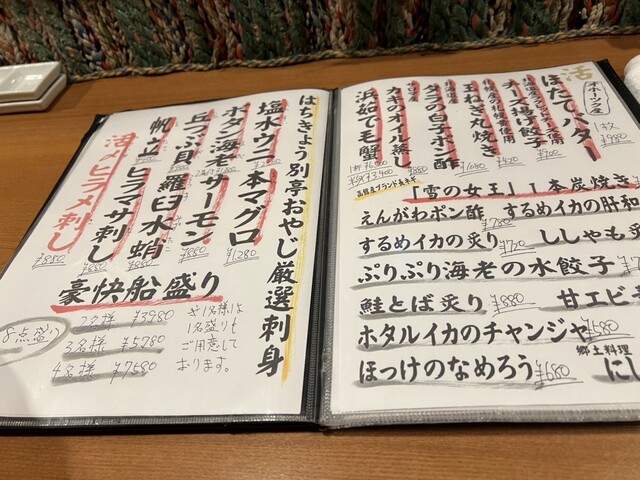 はちきょう別亭おやじ厳選刺身
塩水ウニ
本マグロ
¥1280
ボタン海老
サーモン
¥880
丘つぶ貝
羅臼水蛸
¥880
帆立
ヒラマサ刺し
¥880
活〆ヒラメ刺し
¥880
豪快船盛り
8点盛り
2名様 ¥3980
3名様 ¥5780
4名様 ¥7580
※1名様は
1名盛りも
ご用意して
おります。
活
ほたてバター
オホーツク産
1枚
チーズ揚げ餃子
¥700
玉ねぎ丸焼き
¥520
タラの白子ポン酢
¥1080
カキのオイル蒸し
¥880
浜茹で毛蟹
「雪の女王」1本炭焼き
えんがわポン酢 ¥780
するめイカの肝和
するめイカの炙り ¥720
ししゃも炙
ぷりぷり海老の水餃子
鮭とば炙り ¥880
甘エビ
ホタルイカのチャンジャ ¥580
ほっけのなめろう ¥680
郷土料理
にし